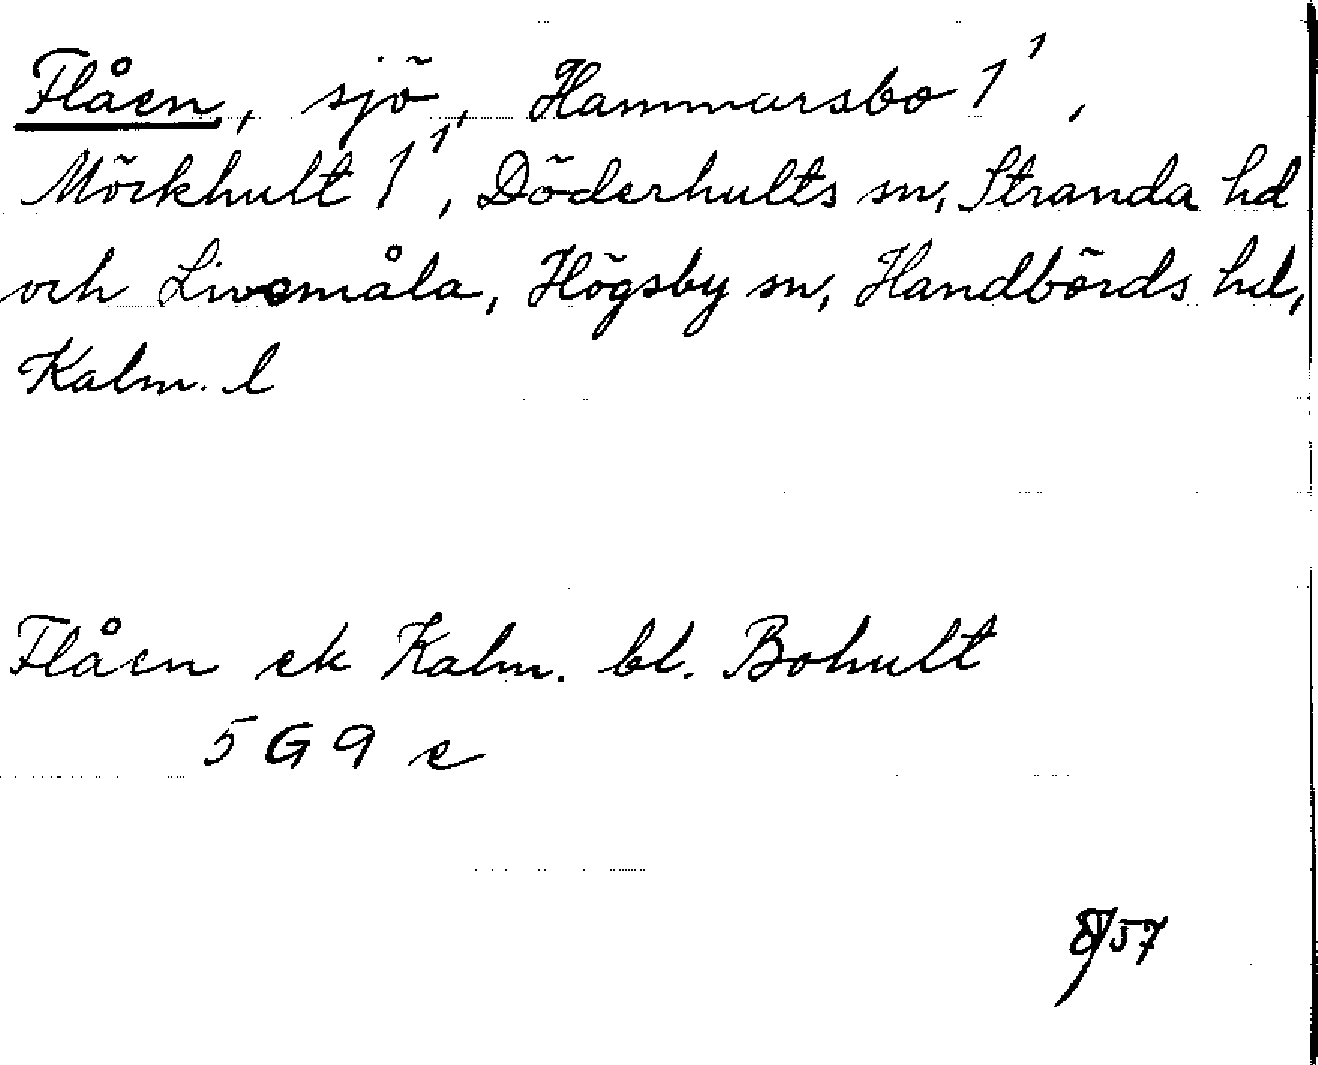 Flåen, sjö, Hammarsbo 1¹,
Mörkhult 1¹, Döderhults sn, Stranda hd
och Livsmåla, Högsby sn, Handbörds hd,
Kalm. l
Flåen ek Kalm. bl. Bohult
5 G 9 e
57